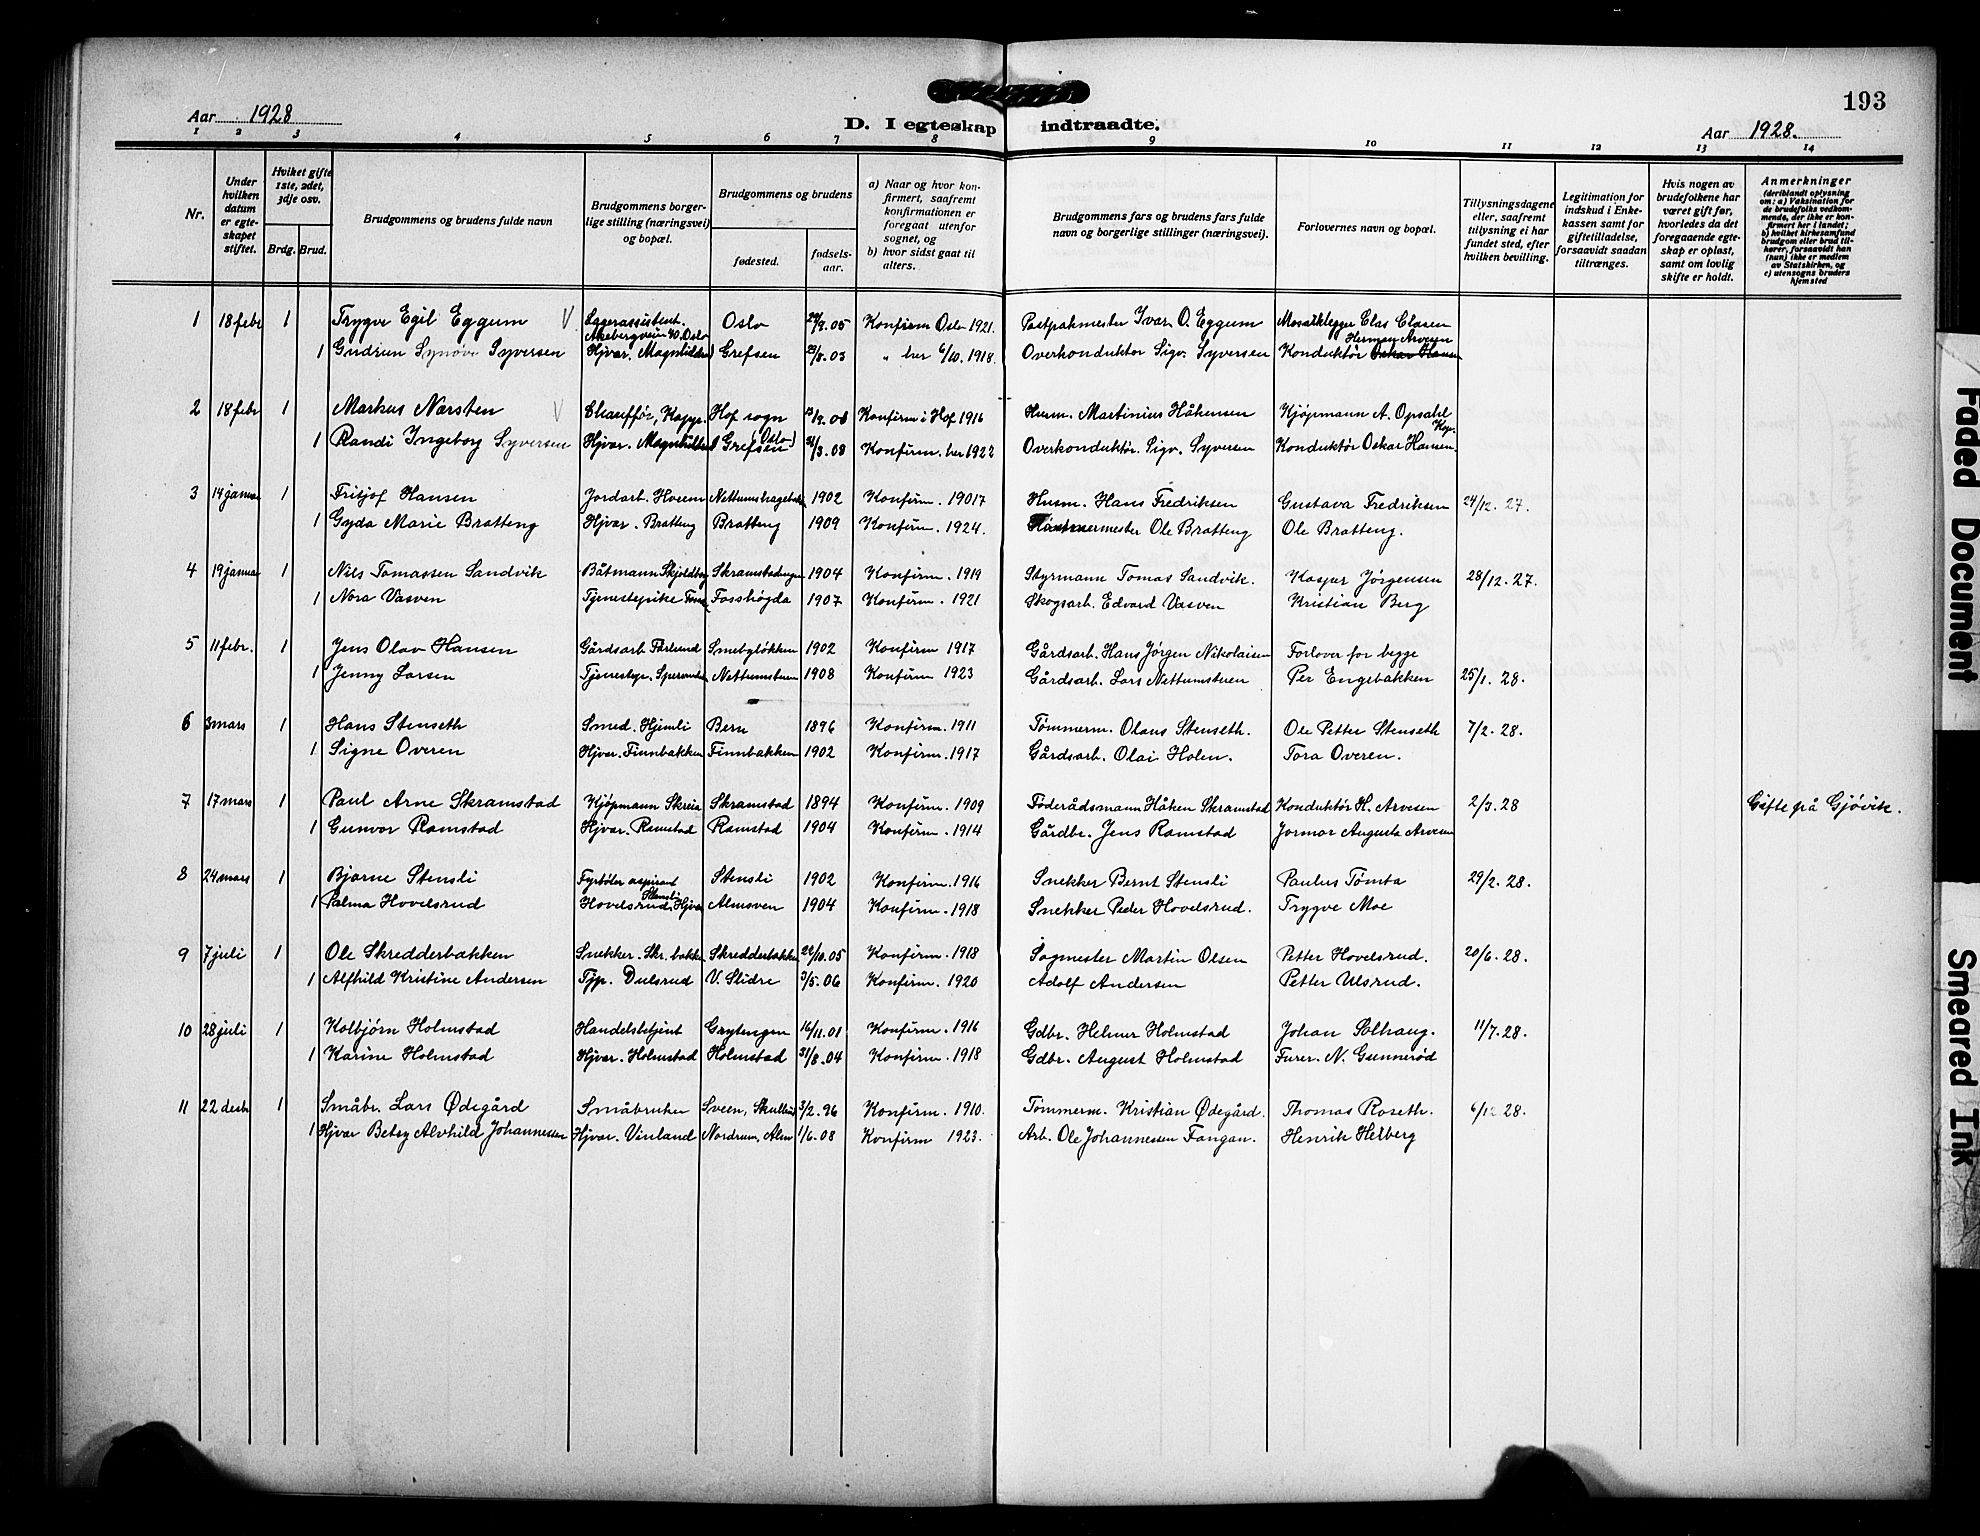 193
Aar 1928
D. I egteskap indtraadte.
Aar 1928.
1 2 3 4 5 6 7 8 9 10 11 12 13 14
Nr.
Under hvilken datum er egteskapet stiftet.
Hvilket gifte 1ste, 2det, 3dje osv.
Brdg. Brud.
Brudgommens og brudens fulde navn
Brudgommens borgerlige stilling (næringsvei) og bopæl.
Brudgommens og brudens
fødested.
fødselsaar.
a) Naar og hvor konfirmert, saafremt konfirmationen er foregaat utenfor sognet, og
b) hvor sidst gaat til alters.
Brudgommens fars og brudens fars fulde navn og borgerlige stillinger (næringsvei).
Forlovernes navn og bopæl.
Tillysningsdagene eller, saafremt tillysning ei har fundet sted, efter hvilken bevilling.
Legitimation for indskud i Enkekassen samt for giftetilladelse, forsaavidt saadan tiltrænges.
Hvis nogen av brudefolkene har været gift før, hvorledes da det foregaaende egteskap er opløst, samt om lovlig skifte er holdt.
Anmerkninger
(deriblandt oplysning om: a) Vaksination for de brudefolks vedkommende, der ikke er konfirmert her i landet; b) hvilket kirkesamfund brudgom eller brud tilhører, forsaavidt han (hun) ikke er medlem av Statskirken, og c) utensogns bruders hjemsted
1 18 febr 1 Trygve Egil Eggum V Lagerassistent. Akebergveien 40. Oslo Oslo 05 Konfirm Oslo 1921. Postpakmester Ivar O. Eggum Mosaiklegger Clas Clasen
1 Gudrun Synøve Syversen Hjvar. Grefsen 03 " her 6/10. 1918. Overkonduktør Sigv. Syversen Konduktør Herman Arvesen Oskar Hansen
2 18 febr 1 Markus Narsten V Chauffør, Kapp. Hof sogn Konfirm i Hof 1916 Husm. Martinius Håkensen Kjøpmann A. Opsahl
1 Randi Ingeborg Syversen Hjvar. Grefsen (Oslo) 3.08 Konfirm. her 1922 Overkonduktør. Sigv. Syversen Konduktør Oskar Hansen. Kap.
3 14 januar 1 Fritjof Hansen Jordarb. Hveem 1902 Konfirm. 19017 Husm. Hans Fredriksen Gustava Fredriksen 24/12. 27.
1 Gyda Marie Bratteng Hjvar. Bratteng Bratteng 1909 Konfirm. 1924. Ole Bratteng Ole Bratteng.
4 19 januar 1 Nils Tomassen Sandvik Båtmann Skjoldborg 1904 Konfirm. 1919 Styrmann Tomas Sandvik. Kaspar Jørgensen 28/12. 27.
1 Nora Vasven Tjenestepike Fosshøgda 1907 Konfirm. 1921 Skogsarb. Edvard Vasven Kristian Berg
5 11 febr. 1 Jens Olav Hansen Gårdsarb. Smebyløkken 1902 Konfirm 1917 Gårdsarb. Hans Jørgen Nikolaisen Forlover for begge
1 Jenny Larsen Tjenestep. Nettumstuen 1908 Konfirm. 1923 Gårdsarb. Lars Nettumstuen Per Engebakken 25/1. 28.
6 3 mars 1 Hans Stenseth Smed. Hjemli Bern 1896 Konfirm. 1911 Tømmerm. Olaus Stenseth. Ole Petter Stenseth 7/2. 28.
1 Signe Overen Hjvar. Finnbakken Finnbakken 1902 Konfirm. 1917 Gårdsarb. Olai Holen. Tora Overen.
7 17 mars 1 Paul Arne Skramstad Kjøpmann Skreia Skramstad 1894 Konfirm. 1909 Føderådsmann Håken Skramstad Konduktør H. Arvesen 2/3. 28 Gifte på Gjøvik.
1 Gunvor Ramstad Hjvar. Ramstad Ramstad 1904 Konfirm. 1914 Gårdbr. Jens Ramstad Augusta Arvesen
8 24 mars 1 Bjarne Stensli Fyrbøter aspirant Stensli Stensli 1902 Konfirm. 1916 Snekker Bernt Stensli Paulus Tømta 29/2. 28.
1 Palma Hovelsrud Hovelsrud, Hjvar Almsven 1904 Konfirm. 1918 Snekker Peder Hovelsrud. Trygve Moe
9 7 juli 1 Ole Skredderbakken Snekker. Skr. bakken Skredderbakken /10.05 Konfirm. 1918 Sagmester Martin Olsen Petter Hovelsrud. 20/6. 28.
1 Alfhild Kristine Andersen Tjp. Dulsrud V. Slidre 3/5. 06 Konfirm. 1920 Adolf Andersen Petter Ulsrud.
10 28 juli 1 Kolbjørn Holmstad Handelsbetjent Grytengen 16/11.01 Konfirm. 1916 Gdbr. Helmer Holmstad Johan Solhaug. 11/7. 28.
1 Karine Holmstad Hjvar. Holmstad Holmstad 31/8.04 Konfirm. 1918 Gdbr. August Holmstad Furer. N. Gunnerød
11 22 desbr 1 Småbr. Lars Ødegård Småbruker Sveen, 3/2. 96 Konfirm. 1910. Tømmerm. Kristian Ødegård. Thomas Roseth. 6/12 28.
1 Hjvar Betsy Alvhild Johannessen Hjvar. Vinland Nordrum, Alm 1/6. 08 Konfirm 1923. Arb. Ole Johannessen Fangan. Henrik Helberg
Faded Document
Smeared Ink